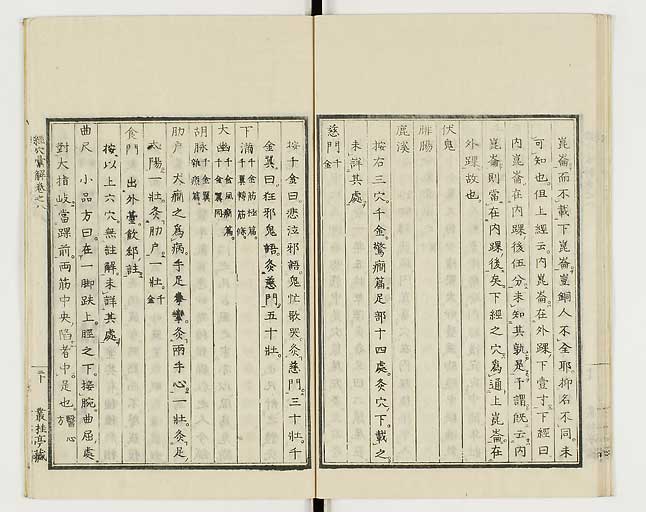 崑崙而不載下崑崙豈銅人不全耶抑名不同未
可知也但上經云內崑崙在外踝下壹寸下經曰
內崑崙在內踝後伍分未知其孰是予謂旣云內
崑崙則當在內踝後矣下經之穴為通上崑崙在
外踝故也
伏兔
腓腸
鹿溪
按右三穴千金驚癇篇足部十四處灸穴下載之
未詳其處
慈門千金
按千金曰悲泣邪語鬼忙歌哭灸慈門三十壯千
金翼曰狂邪鬼語灸慈門五十壯
下滿千金筋極篇千金翼轉筋條
大幽千金風癇篇千金翼同
胡脉千金翼雜療篇
肋户犬癇之為病手足攣灸兩手心一壯灸足
太陽一壯灸肋户一壯千金
食門出外臺飲部註
按以上六穴無註解未詳其處
曲尺小品方曰在一脚趺上脛之下接腕曲屈處
對大指歧當踝前兩筋中央陷者中是也醫心方
經穴彙解卷之八
二十
叢桂亭藏